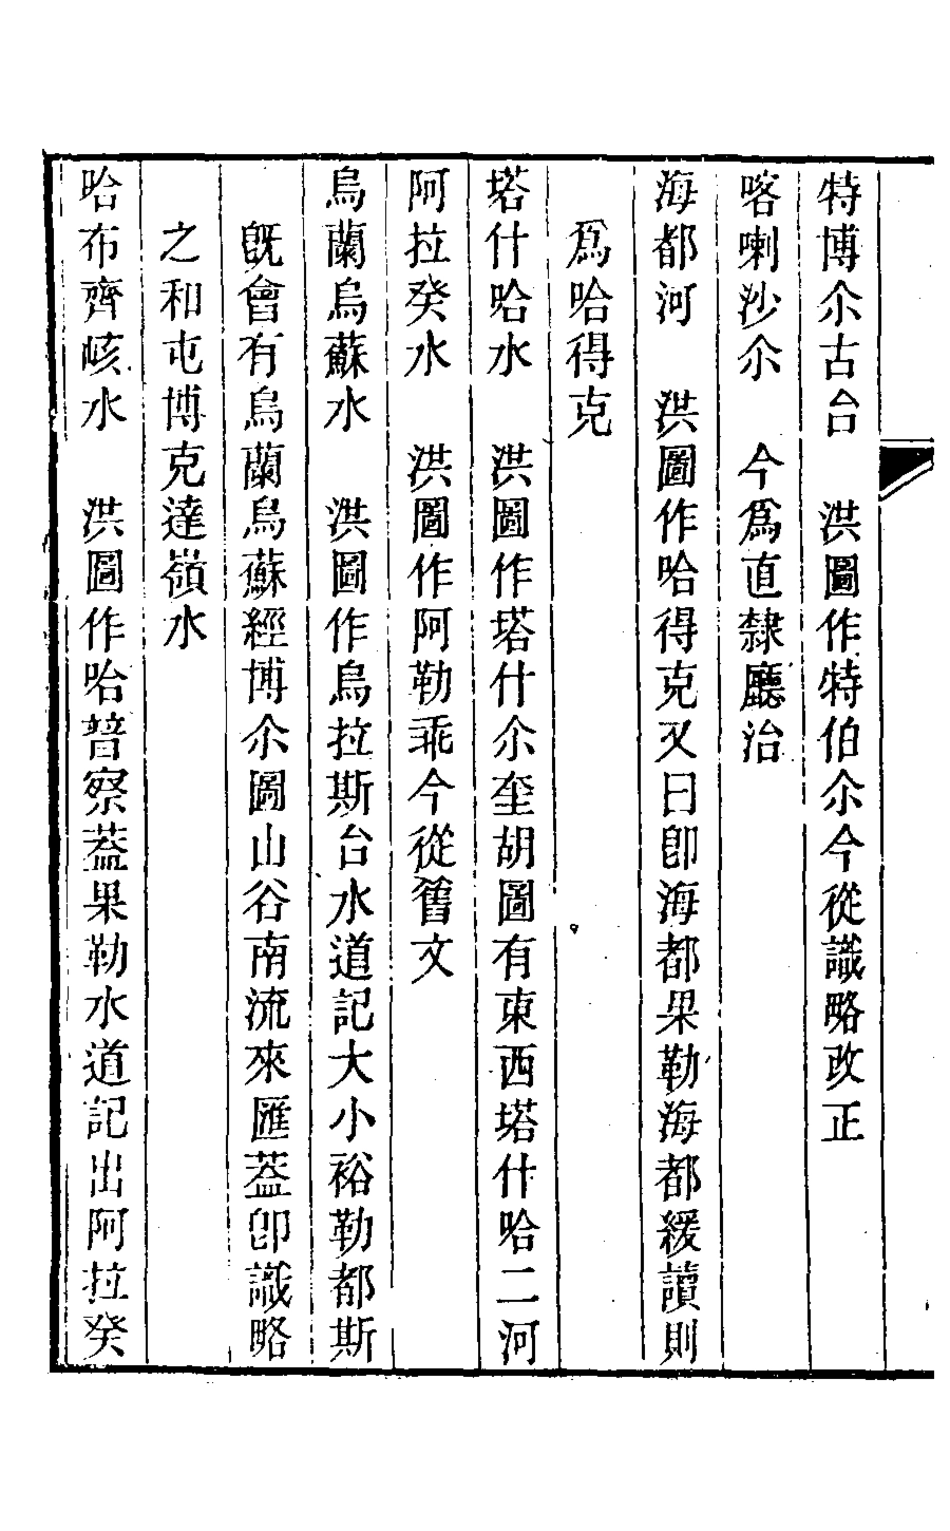 特博尒古台　洪圖作特伯尒今從識略改正
喀喇沙尒　今爲直隸廳治
海都河　洪圖作哈得克又曰卽海都果勒海都緩讀則
爲哈得克
塔什哈水　洪圖作塔什尒奎胡圖有東西塔什哈二河
阿拉癸水　洪圖作阿勒乖今從舊文
烏蘭烏蘇水　洪圖作烏拉斯台水道記大小裕勒都斯
旣會有烏蘭烏蘇經博尒圖山谷南流來匯葢卽識略
之和屯博克達嶺水
哈布齊峐水　洪圖作哈普察葢果勒水道記出阿拉癸